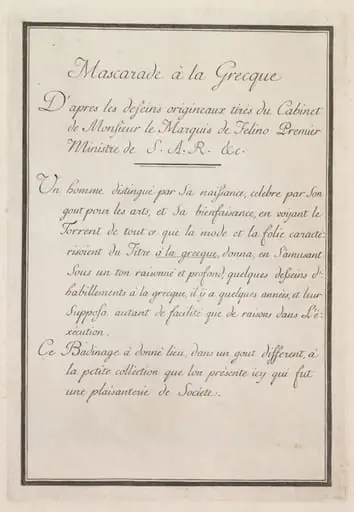 Mascarade à la Grecque
D'apres les desseins origineaux tirés du Cabinet
de Monsieur le Marquis de Felino Premier
Ministre de S. A. R. &c.
Un homme distingué par Sa naissance, celebre par Son
gout pour les arts, et Sa bienfaisance, en voyant le
Torrent de tout ce que la mode et la folie caracté
risoient du Titre à la grecque, donna, en S'amusant
Sous un ton raisonné et profond, quelques desseins d'
habillements à la grecque, il y a quelques années, et leur
Supposa autant de facilité que de raisons dans L'é-
xécution.
Ce Badinage à donné lieu, dans un gout different, à
la petite collection que l'on présente icy qui fut
une plaisanterie de Societé.